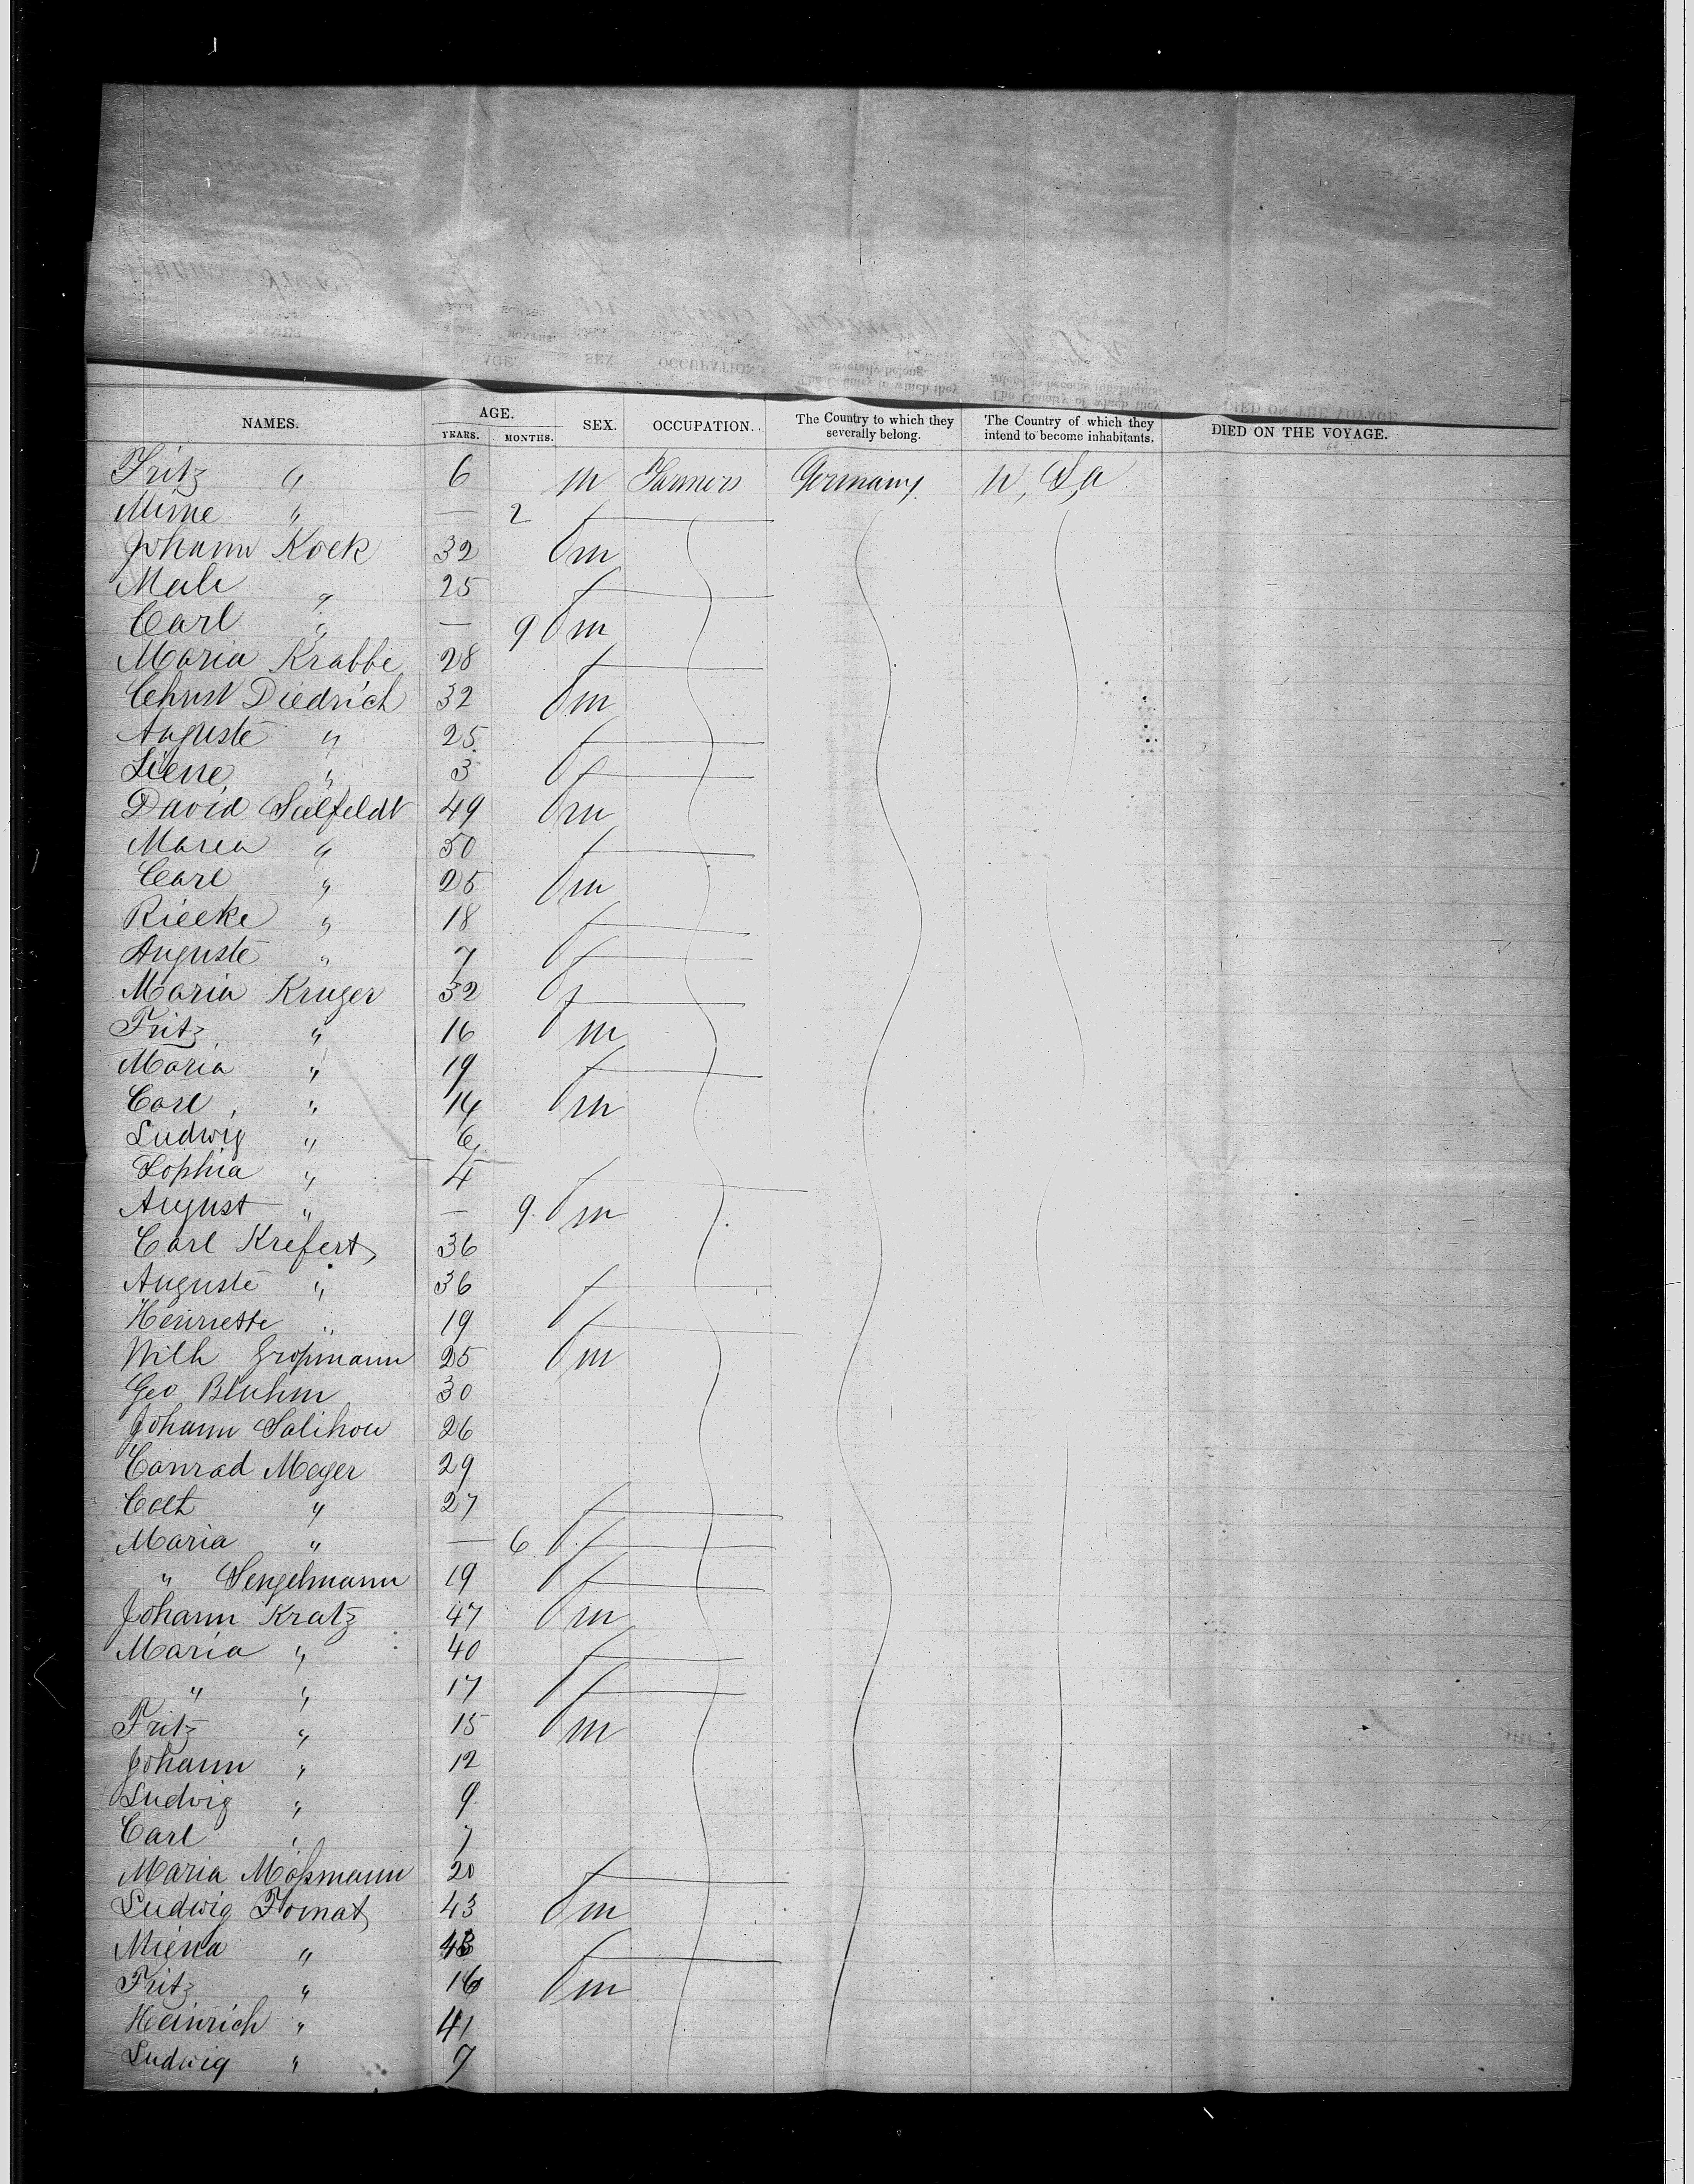 NAMES. AGE. SEX. OCCUPATION. The Country to which they severally belong. The Country of which they intend to become inhabitants. DIED ON THE VOYAGE.
YEARS. MONTHS.
Fritz " 6 m Farmers Germany U, S, a
Mine " — 2 f
Johann Kock 32 m
Mali " 25 f
Carl " — 9 m
Maria Krabbe 28 f
Christ Diedrich 32 m
Auguste " 25 f
Liene " 3 f
David Sielfeldt 49 m
Maria " 50 f
Carl " 25 m
Rieeke " 18 f
Auguste " 7 f
Maria Kruger 32 f
Fritz " 16 m
Maria " 19 f
Carl " 14 m
Ludwig " 6
Sophia " 4 f
August " — 9 m
Carl Krefert 36
Auguste " 36 f
Henriette " 19 f
Wilh Großmann 25 m
Geo Bluhm 30
Johann Salihou 26
Conrad Meyer 29
" 27 f
Maria " — 6 f
" Sengelmann 19 f
Johann Kratz 47 m
Maria " 40 f
" " 17 f
Fritz " 15 m
Johann " 12
Ludwig " 9
Carl " 7
Maria Moßmann 20 f
Ludwig 43 m
Miena " 43 f
Fritz " 16 m
Heinrich " 41
Ludwig " 7